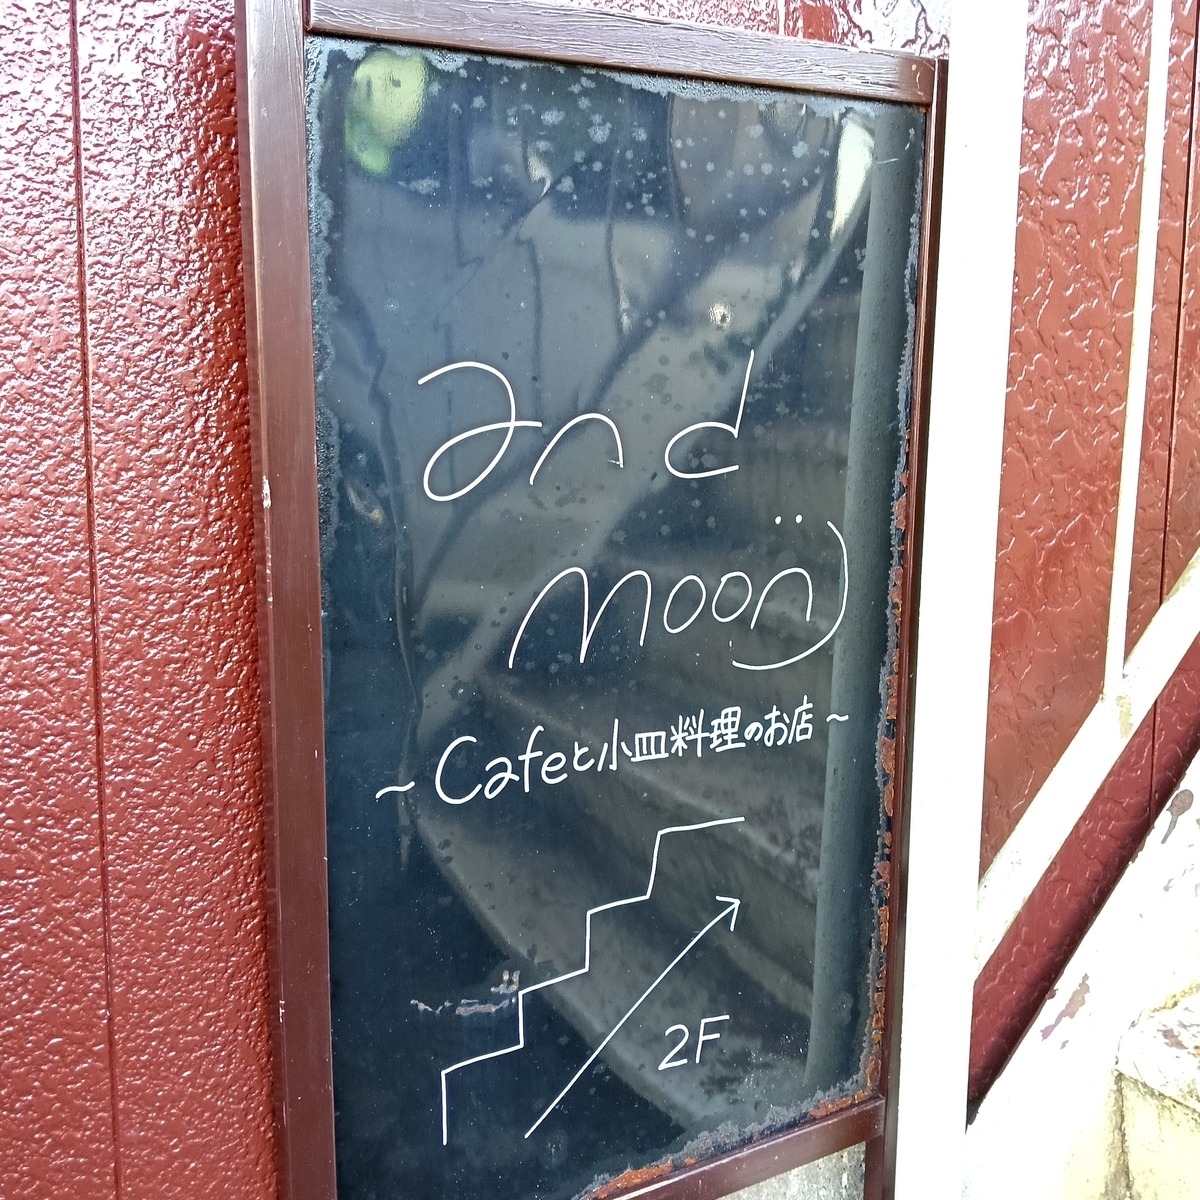 and
moon
~Cafeと小皿料理のお店~
2F